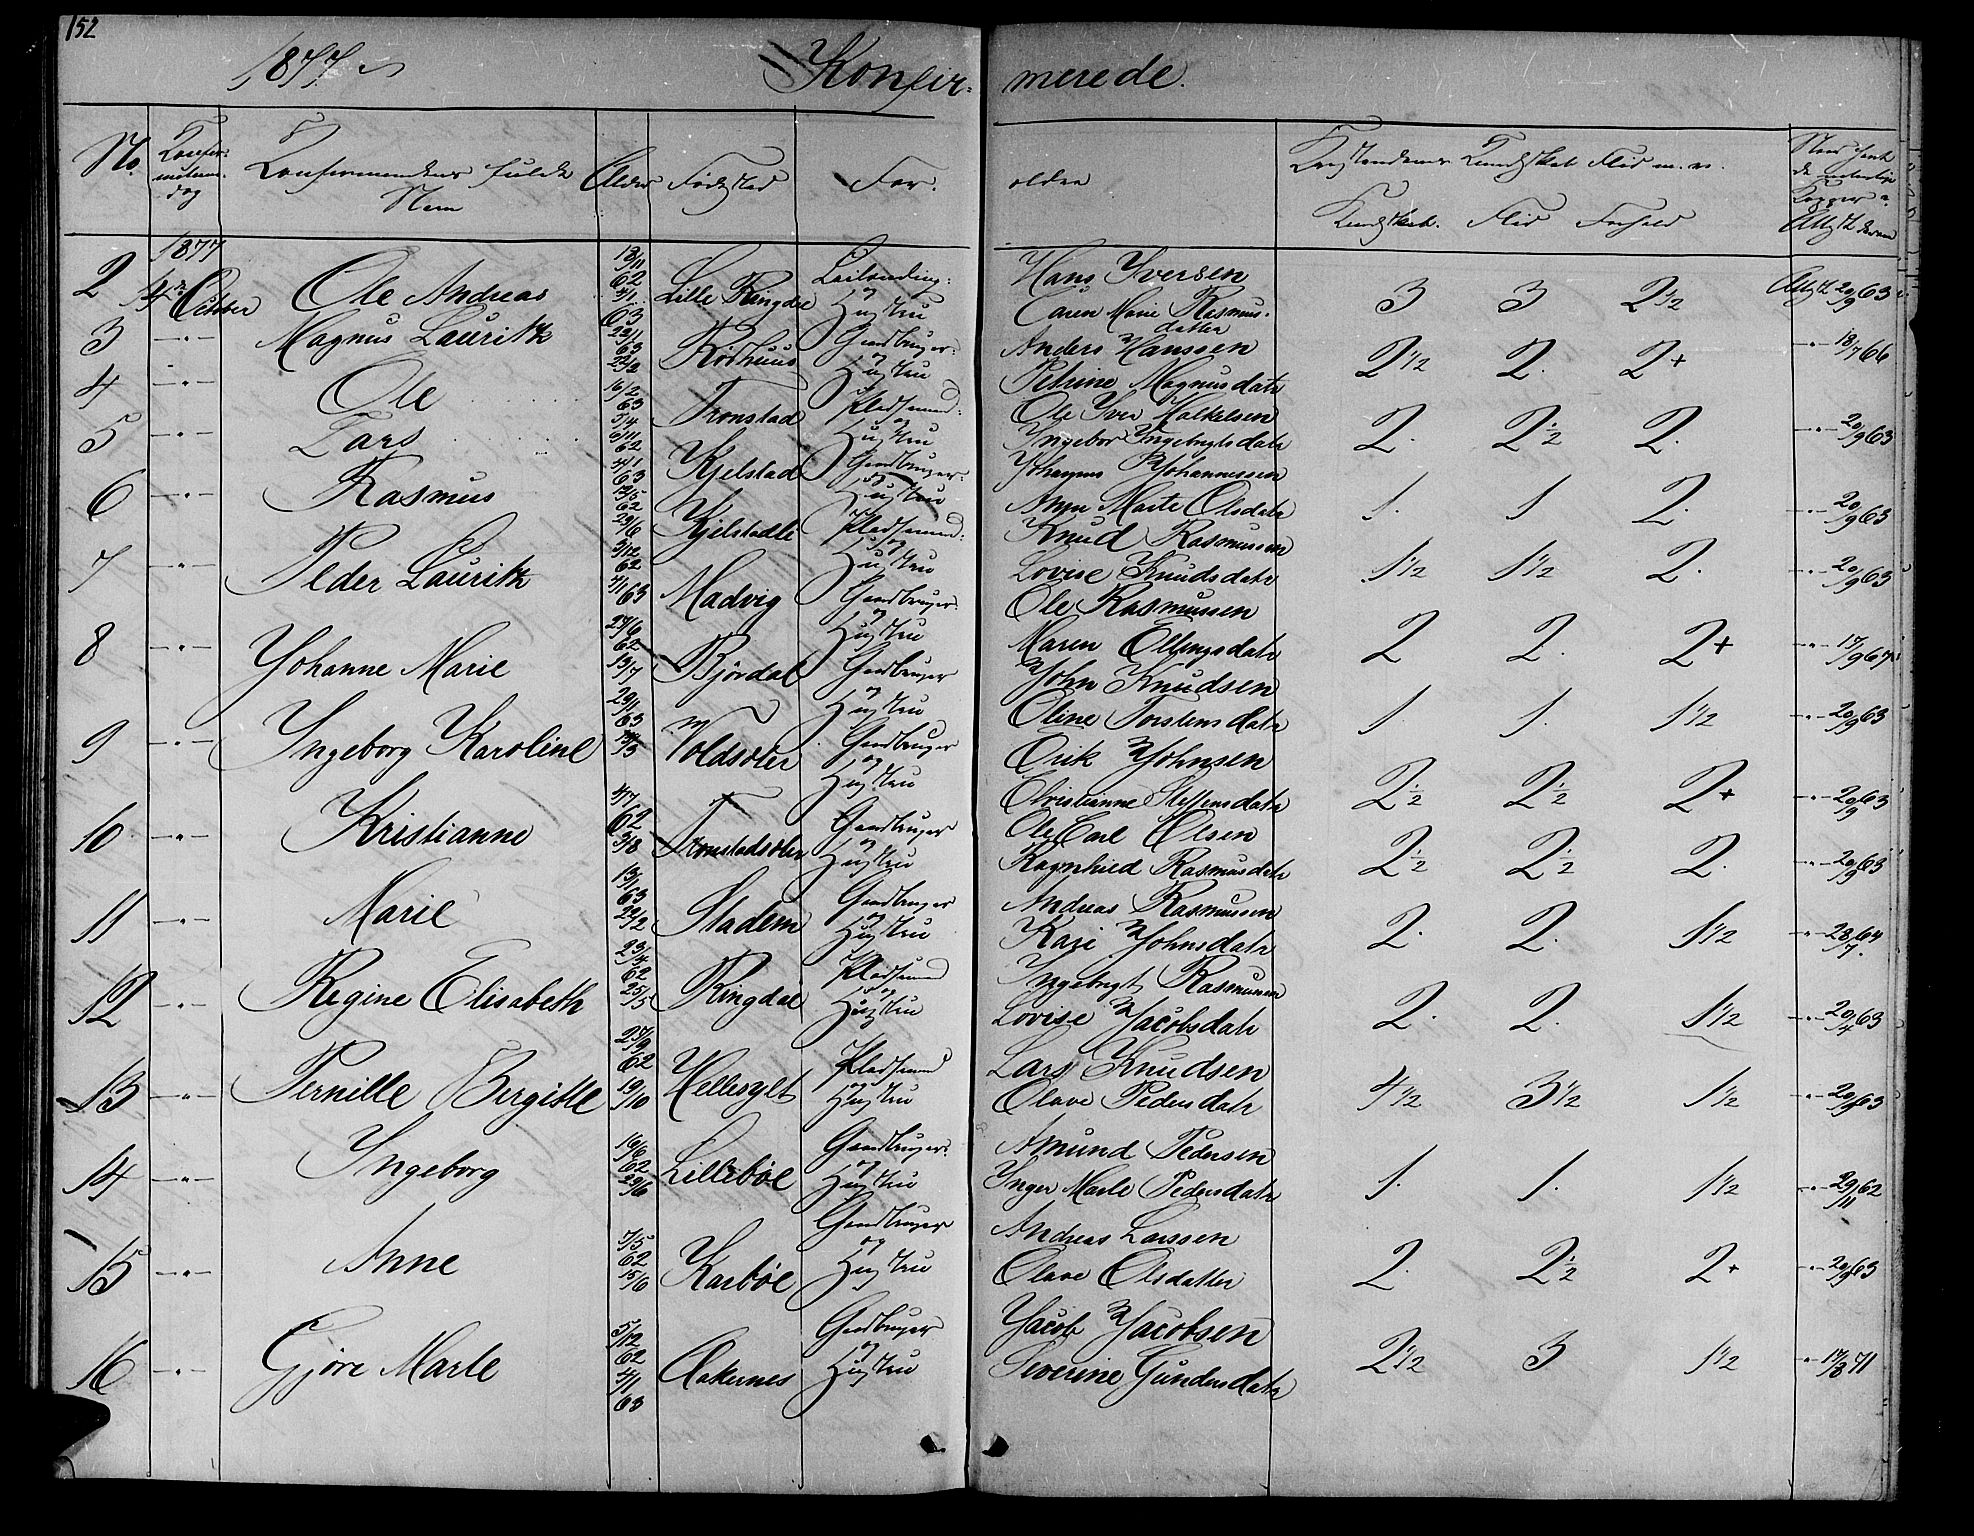 152
1877.
Konfir- merede.
No. Konfirmations dag Konfirmandens fulde Navn Alder Fødested For- ældre Kundskab. Flid Forhold
1877
2 14de Octber Ole Andreas 18/11 62 4/1 63 Lille Ringdal Leilænding og Hustru Hans Iversen Caren Marie Rasmusdatter 3 3 2 1/2 Attest 20/9 63
3 -"- Magnus Lauritz 22/1 63 22/2 Rødhuus Gaardbruger og Hustru Anders Hanssen Petrine Magnusdatr 2 1/2 2. 2+ -"- 18/7 66
4 -"- Ole 16/2 63 5/4 Tronstad Pladsmand og Hustru Ole Iver Ingebor Ingebrigtsdatr 2. 2 1/2 2. -"- 20/9 63
5 -"- Lars 6/11 62 4/1 63 Kjelstad Gaardbruger og Hustru Johannes Johannessen Anne Marte Olsdatr 1. 1 2. -"- 20/9 63
6 -"- Rasmus 62 29/6 Kjelstadli Pladsmand og Hustru Knud Rasmussen Lovise Knudsdatr 1 1/2 1 1/2 2. -"- 20/9 63
7 -"- Peder Lauritz 3/12 62 4/1 63 Madvig Gaardbruger og Hustru Ole Rasmussen Maren Ellingsdatr 2 2. 2+ -"- 17/9 67
8 -"- Johanne Marie 24/6 62 13/7 Bjørdal Gaardbruger og Hustru John Knudsen Oline Torstensdatr 1. 1. 1 1/2 -"- 20/9 63
9 -"- Ingeborg Karoline 29/1 63 Voldsæter Gaardbruger og Hustru Erik Johnsen Christianne Steffensdatr 2 1/2 2 1/2 2+ -"- 20/9 63
10 -"- Kristianne 4/7 62 3/8 Tronstadsæter Gaardbruger og Hustru Ole Carl Olsen Ragnhild Rasmusdatr 2 1/2 2 1/2 2. -"- 20/9 63
11 -"- Marie 13/1 63 22/2 Stadem Gaardbruger og Hustru Andreas Rasmussen Kari Johnsdatr 2. 2. 1 1/2 -"- 28/7 64
12 -"- Regine Elisabeth 23/4 62 25/5 Ringdal Pladsmand og Hustru Ingebrigt Rasmussen Lovise Jacobsdatr 2. 2. 1 1/2 -"- 63
13 -"- Pernille Bergitte 62 19/10 Hellesylt Pladsmand og Hustru Lars Knudsen Olave Pedersdatr 4 1/2 3 1/2 1 1/2 -"- 20/9 63
14 -"- Ingeborg 16/6 62 29/6 Lillebøe Gaardbruger og Hustru Amund Pedersen Inger Marte Pedersdatr 1. 1. 1 1/2 -"- 29/11 62
15 -"- Anne 7/5 62 15/6 Karbøe Gaardbruger og Hustru Andreas Larssen Olave Olsdatter 2. 2 1/2 2+ -"- 20/9 63
16 -"- Gjøre Marte 5/12 62 4/1 63 Aakernes Gaardbruger og Hustru Jacob Jacobsen Severine Gundersdatr 2 1/2 3 1 1/2 -"- 17/8 71